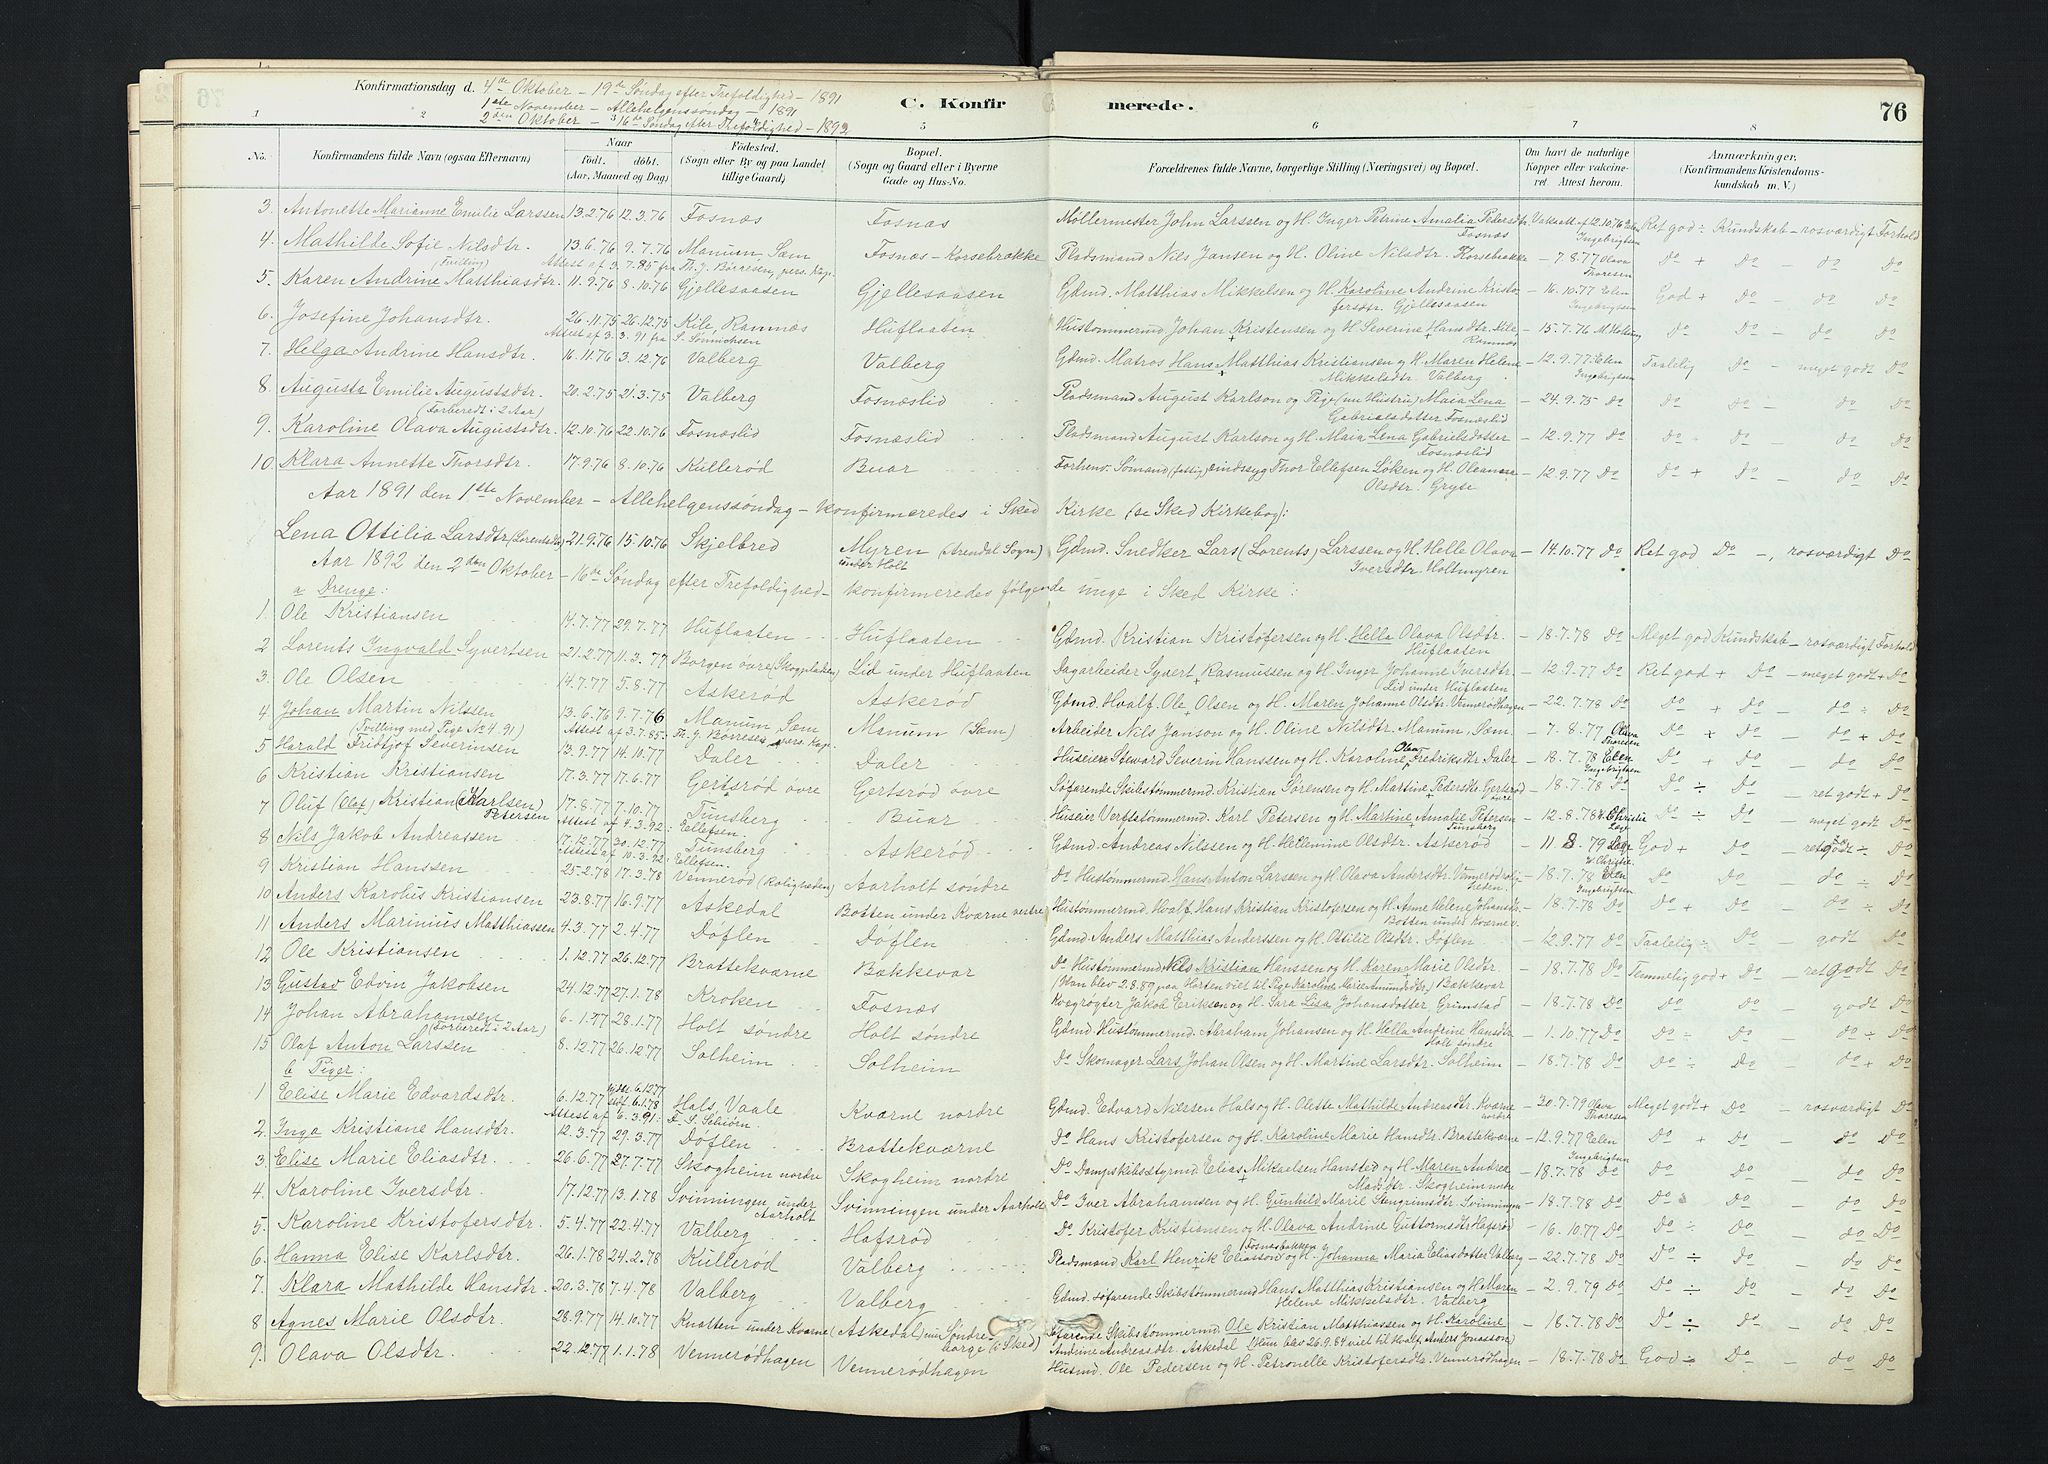 Konfirmationsdag d. 4de Oktober - 19de Søndag efter Trefoldighed - 1891
1ste November - Allehelgenssøndag - 1891
2den Oktober - 16de Søndag efter Trefoldighed - 1892
C. Konfirmerede. 76
1 2 3 4 5 6 7 8
No. Konfirmandens fulde Navn (ogsaa Efternavn) Naar født. døbt. (Aar, Maaned og Dag) Fødested. (Sogn eller By og paa Landet tillige Gaard) Bopæl. (Sogn og Gaard eller i Byerne Gade og Hus-No. Forældrenes fulde Navne, borgerlige Stilling (Næringsvei) og Bopæl. Om havt de naturlige Kopper eller vakcineret. Attest herom. Anmærkninger. (Konfirmandens Kristendomskundskab m. V.)
3. Antonette Marianne Emilie Larssen 13.2.76 12.3.76 Fosnæs Fosnæs Møllermester John Larssen og H. Inger Petrine Amalia Pedersdtr. Fosnæs 12.10.76 Ret god ÷ Kundskab - rosværdigt Forhold
4. Mathilde Sofie Nilsdtr. (Tvilling) 13.6.76 9.7.76 Manum, Sæm Fosnæs-Korsebrække Pladsmand Nils Jansen og H. Oline Nilsdtr. Korsebrække - 7.8.77 Olava Thoresen Do + Do - do Do
Attest af 3.7.85 fra Th. J. Børresen, pers. Kap.
5. Karen Andrine Matthiasdtr. 11.9.76 8.10.76 Gjellesaasen Gjellesaasen Gdmd. Matthias Mikkelsen og H. Karoline Andrine Kristofersdtr. Gjellesaasen - 16.10.77 Elen Ingebrigtsen God + Do - do Do
6. Josefine Johansdtr. 26.11.75 26.12.75 Kile, Ramnæs Huflaaten Hustømmermd Johan Kristensen og H. Severine Hansdtr. Kile Ramnæs - 15.7.76 Do Do - do Do
Attest af 3.3.91 fra S. Sønnichsen
7. Helga Andrine Hansdtr. 16.11.76 3.12.76 Valberg Valberg Gdmd. Matros Hans Matthias Kristiansen og H. Maren Helene Mikkelsdtr. Valberg - 12.9.77 Elen Ingebrigtsen Taalelig Do - meget godt Do
8. Augusta Emilie Augustsdtr. (Forberedt i 2 Aar) 20.2.75 21.3.75 Valberg Fosnæslid Pladsmand August Karlson og Pige (nu Hustru) Maia Lena Gabrielsdotter Fosnæslid - 24.9.75 Do Do Do - do Do
9. Karoline Olava Augustsdtr. 12.10.76 22.10.76 Fosnæslid Fosnæslid Pladsmand August Karlson og H. Maia Lena Gabrielsdotter Fosnæslid - 12.9.77 Do Do Do - do Do
10 Klara Annette Thorsdtr. 17.9.76 8.10.76 Kullerød Buar Forhenv. Sømand (fattig), sindssyg Thor Ellefsen Løken og H. Oleanna Olsdtr. Gryte - 12.9.77 Do Do + Do do Do
Aar 1891 den 1ste November - Allehelgenssøndag - konfirmeredes i Sked Kirke (se Sked Kirkebog):
Lena Ottilia Larsdtr. (Lorentsdtr.) 21.9.76 15.10.76 Skjelbred Myren (Arendal Sogn) under Holt Gdmd. Snedker Lars (Lorents) Larssen og H. Helle Olava Iversdtr. Holtmyren - 14.10.77 Do Ret god Do -, rosværdigt Do
Aar 1892 den 2den Oktober - 16de Søndag efter Trefoldighed - konfirmeredes følgende unge i Sked Kirke:
a Drenge:
1. Ole Kristiansen 14.7.77 29.7.77 Huflaaten Huflaaten Gdmd. Kristian Kristofersen og H. Hella Olava Olsdtr. Huflaaten - 18.7.78 Do Meget god Kundskab - rosværdigt Forhold
2 Lorents Ingvald Syvertsen 21.2.77 11.3.77 Borgen øvre (Skogpladsen) Lid under Huflaaten Dagarbeider Syvert Rasmussen og H. Inger Johanne Iversdtr. Lid under Huflaaten - 12.9.77 Do Ret god + Do - meget godt + Do
3. Ole Olsen 14.7.77 5.8.77 Askerød Askerød Gdmd. Hvalf. Ole Olsen og H. Maren Johanne Olsdtr. Vennerødhagen - 22.7.78 Do Do + Do - do ÷ Do
4 Johan Martin Nilssen (Tvilling med Pige No 4. 91) 13.6.76 9.7.76 Manum, Sæm Manum (Sæm) Arbeider Nils Janson og H. Oline Nilsdtr. Manum, Sæm - 7.8.77 Olava Thoresen Do + Do - do + Do
Attest af 3.7.85: Th. J. Børresen, pers. Kap.
5 Harald Fridtjof Severinsen 13.9.77 14.10.77 Daler Daler Huseier Steward Severin Hanssen og H. Karoline Olea Fredriksdtr. Daler - 18.7.78 Elen Ingebrigtsen Do + Do - do Do
6 Kristian Kristiansen 17.3.77 17.6.77 Gertsrød øvre Gertsrød øvre Søfarende Skibstømmermd. Kristian Sørensen og H. Martine Pedersdtr. Gertsrød øvre - 18.7.78 Do Do ÷ Do - ret godt + Do
7 Oluf (Olaf) Kristian (Karlsen) Petersen 17.8.77 7.10.77 Tunsberg Buar Huseier Verftstømmermd. Karl Petersen og H. Martine Amalie Petersen Tunsberg - 12.8.78 Christie Læge Do ÷ Do - meget godt Do
Attest af 4.3.92: Ellefsen.
8 Nils Jakob Andreassen 17.12.77 30.12.77 Tunsberg Askerød Gdmd. Andreas Nilssen og H. Hellemine Olsdtr. Askerød - 11.8.79 Læge W. Christie God + Do - ret godt ÷ Do
Attest af 10.3.92: Ellefsen.
9 Kristian Hanssen 25.2.78 17.3.78 Vennerød (Roligheden) Aarholt søndre Do Hustømmermd. Hans Anton Larssen og H. Olava Andersdtr. Vennerød Roligheden - 18.7.78 Elen Ingebrigtsen Do Do - do ÷ Do
10 Anders Karolius Kristiansen 23.8.77 16.9.77 Askedal Botten under Kværne vestre Hustømmermd. Hvalf. Hans Kristian Kristofersen og H. Anne Helene Johansdtr. Botten under Kværne v. - 18.7.78 Do Do + Do - do ÷ Do
11 Anders Marinius Matthiassen 4.3.77 2.4.77 Døflen Døflen Gdmd. Anders Matthias Anderssen og H. Ottilie Olsdtr. Døflen - 12.9.77 Do Taalelig ÷ Do - godt Do
12 Ole Kristiansen 1.12.77 26.12.77 Brattekværne Bækkevar Do Hustømmermd. Nils Kristian Hanssen og H. Karen Marie Olsdtr. (Han blev 2.8.89 paa Horten viet til Pige Karoline Marie Amundsdtr.) Bækkevar - 18.7.78 Do Temmelig god + Do - ret godt Do
13 Gustav Edvin Jakobsen 24.12.77 27.1.78 Kroken Fosnæs Kvægrøgter Jakob Eriksen og H. Sara Lisa Johansdotter Grimstad - 18.7.78 Do Do Do - godt Do
14 Johan Abrahamsen (Forberedt i 2 Aar) 6.1.77 28.1.77 Holt søndre Holt søndre Gdmd. Hustømmermd. Abraham Johansen og H. Hella Andrine Hansdtr. Holt søndre - 1.10.77 Do Do ÷ Do - do Do
15 Olaf Anton Larssen 8.12.77 26.12.77 Solheim Solheim Do Skomager Lars Johan Olsen og H. Martine Larsdtr. Solheim - 18.7.78 Do Do ÷ Do - do + Do
b Piger:
1 Elise Marie Edvardsdtr. 6.12.77 hjdbt. 6.12.77 stdf. 6.1.78 Hals, Vaale Kværne nordre Gdmd. Edvard Nilssen Hals og H. Olette Mathilde Andreasdtr. Kværne nordre - 30.7.79 Olava Thoresen Meget godt + Do - rosværdigt Do
Attest af 6.3.91: F. S. Schiörn.
2. Inga Kristiane Hansdtr. 12.3.77 29.3.77 Døflen Brattekværne Do Hans Kristofersen og H. Karoline Marie Hansdtr. Brattekværne - 12.9.77 Elen Ingebrigtsen Do + Do - do Do
3. Elise Marie Eliasdtr. 26.6.77 27.7.77 Skogheim nordre Skogheim nordre Do Dampskibsstyrmd. Elias Mikaelsen Hansted og H. Maren Andrea Madsdtr. Skogheim nordre - 18.7.78 Do Do Do - do Do
4. Karoline Iversdtr. 17.12.77 13.1.78 Svinningen under Aarholt Svinningen under Aarholt Do Iver Abrahamsen og H. Gunhild Marie Stengrimsdtr. Svinningen - 18.7.78 Do Do Do - do Do
5. Karoline Kristofersdtr. 5.4.77 22.4.77 Valberg Hafsrød Do Kristofer Kristiansen og H. Olava Andrine Guttormsdtr. Hafsrød - 16.10.77 Do Do ÷ Do - do Do
6. Hanna Elise Karlsdtr. 26.1.78 24.2.78 Kullerød Valberg Pladsmand Karl Henrik Eliasson (Fosnæsbakken) og H. Johanna Maria Eliasdotter Valberg - 22.7.78 Do Do ÷ Do - do Do
7. Klara Mathilde Hansdtr. 20.3.78 7.4.78 Valberg Valberg Gdmd. Søfarende Skibstømmermd. Hans Matthias Kristiansen og H. Maren Helene Mikkelsdtr. Valberg - 2.9.79 Do Do ÷ Do - do Do
8 Agnes Marie Olsdtr. 28.9.77 14.10.77 Knatten under Kværne (Askedal) nu Søndre- borge (i Sked) Søfarende Skibstømmermd. Ole Kristian Matthiassen og H. Karoline Andrine Andreasdtr. Askedal (Hun blev 26.9.84 viet til Hvalf. Anders Jonasson) - 18.7.78 Do Do ÷ Do - do Do
9. Olava Olsdtr. 22.12.77 1.1.78 Vennerødhagen Vennerødhagen Husmd. Ole Pedersen og H. Petronelle Kristofersdtr. Vennerødhagen - 18.7.78 Do God ÷ Do - do Do